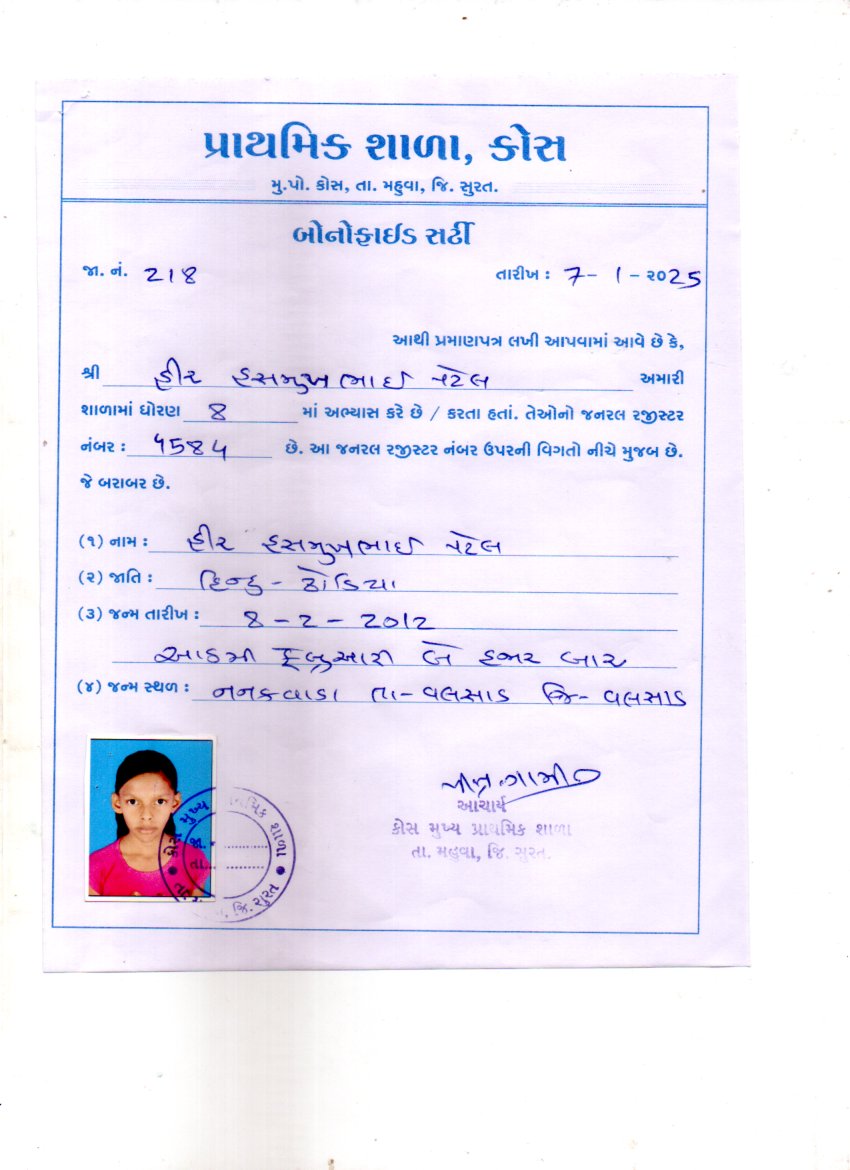 પ્રાથમિક શાળા, કોસ
મુ.પો. કોસ, તા. મહુવા, જિ. સુરત.
બોનોફાઈડ સર્ટી
જા. નં. 218
તારીખ : 7 - 1 - ૨૦25
આથી પ્રમાણપત્ર લખી આપવામાં આવે છે કે,
શ્રી હીર હસમુખભાઈ પટેલ અમારી
શાળામાં ધોરણ 8 માં અભ્યાસ કરે છે / કરતા હતાં. તેઓનો જનરલ રજીસ્ટર
નંબર : 5584 છે. આ જનરલ રજીસ્ટર નંબર ઉપરની વિગતો નીચે મુજબ છે.
જે બરાબર છે.
(૧) નામ : હીર હસમુખભાઈ પટેલ
(૨) જાતિ : હિન્દુ - ઢોડિયા
(૩) જન્મ તારીખ : 8 - 2 - 2012
આઠમી ફેબ્રુઆરી બે હજાર બાર
(૪) જન્મ સ્થળ : નનકવાડા તા - વલસાડ જિ - વલસાડ
આચાર્ય
કોસ મુખ્ય પ્રાથમિક શાળા
તા. મહુવા, જિ. સુરત.
કોસ મુખ્ય પ્રાથમિક શાળા
જા.
તા.
જિ. સુરત